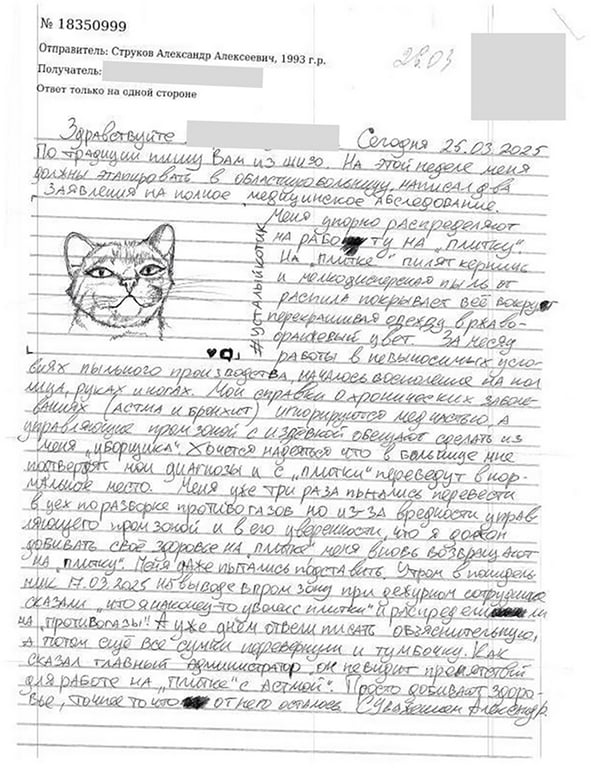 № 18350999
Отправитель: Струков Александр Алексеевич, 1993 г.р.
Получатель:
Ответ только на одной стороне
28.03
Здравствуйте Сегодня 25.03.2025
По традиции пишу Вам из шизо. На этой неделе меня
должны этапировать в областную больницу, написал два
заявления на полное медицинское обследование.
Меня упорно распределяют
на работу на „плитку".
На „плитке" пилят кирпич
и мелкодисперсная пыль от
распила покрывает всё вокруг
перекрашивая одежду в ржаво-
оранжевый цвет. За месяц
работы в невыносимых усло-
#УСТАЛЫЙКОТИК
виях пыльного производства, началось воспаление на пол
лица, руках и ногах. Мои справки о хронических заболе-
ваниях (астма и бронхит) игнорируются медчастью, а
управляющие промзоной с издёвкой обещают сделать из
меня „уборщика". Хочется надеяться что в больнице мне
подтвердят мои диагнозы и с „плитки" переведут в нор-
мальное место. Меня уже три раза пытались перевести
в цех по разборке противогазов но из-за вредности управ-
ляющего промзоной и в его уверенности, что я должен
добивать своё здоровье на „плитке" меня вновь возвращают
на „плитку". Меня даже пытались подставить. Утром в понедель-
ник 17.03.2025 на выводе в промзону при дежурном сотруднике
сказали „что я наконец-то уволен с плитки" и распределили
на „противогазы"! А уже днём отвели писать объяснительную,
а потом ещё все сумки перевернули и тумбочку. Как
сказал главный администратор „он не видит препятствий
для работе на „плитке" с Астмой". Просто добивают здоро-
вье, точнее то что от него осталось. С Уважением Александр.